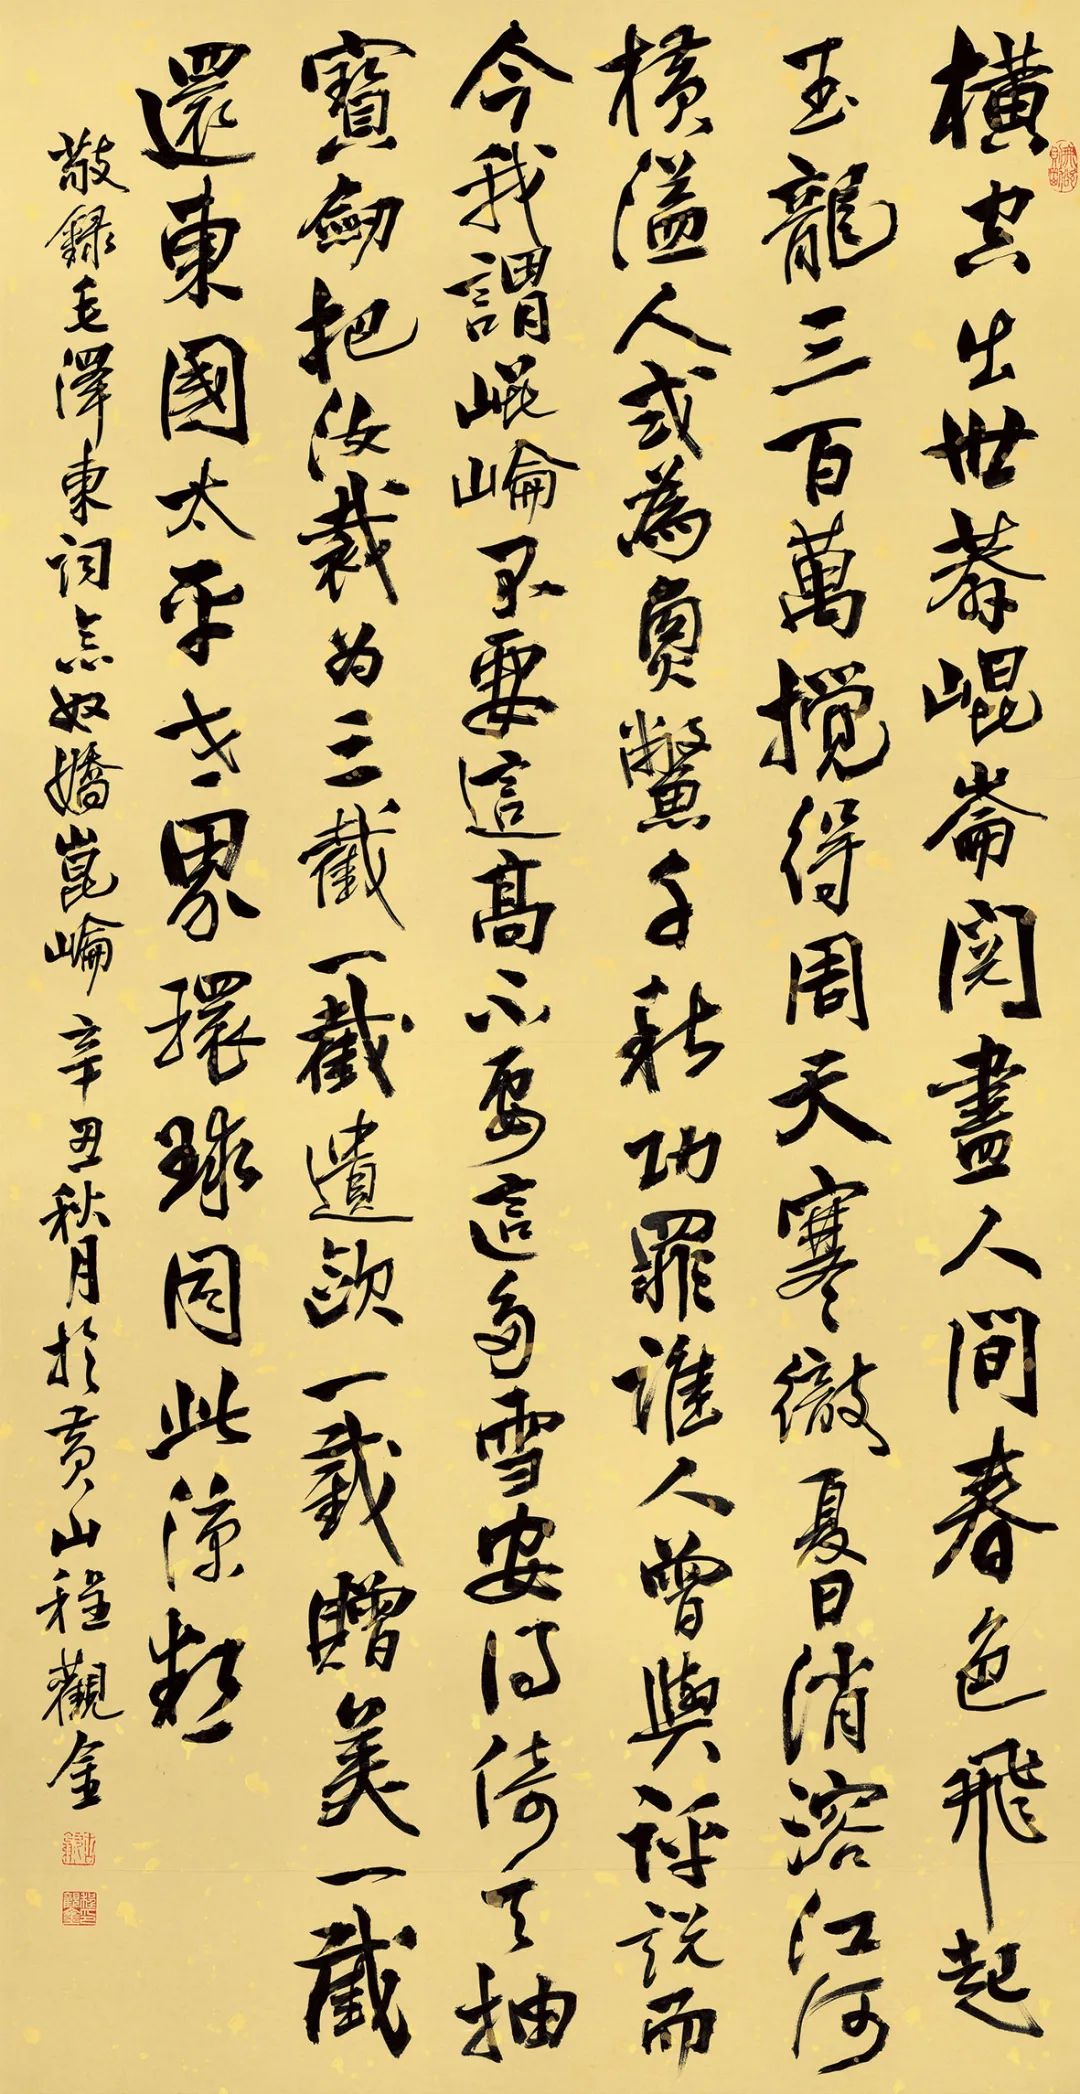 橫空出世莽崐崙閱盡人間春色飛起
玉龍三百萬攪得周天寒徹夏日消溶江河
橫溢人或為魚鱉千秋功罪誰人曾與評説而
今我謂崐崘不要這高不要這多雪安得倚天抽
寶劍把汝裁为三截一截遺歐一截贈美一截
還東國太平世界環球同此涼熱
敬録毛澤東詞念奴嬌崑崘辛丑秋月於黄山程觀金